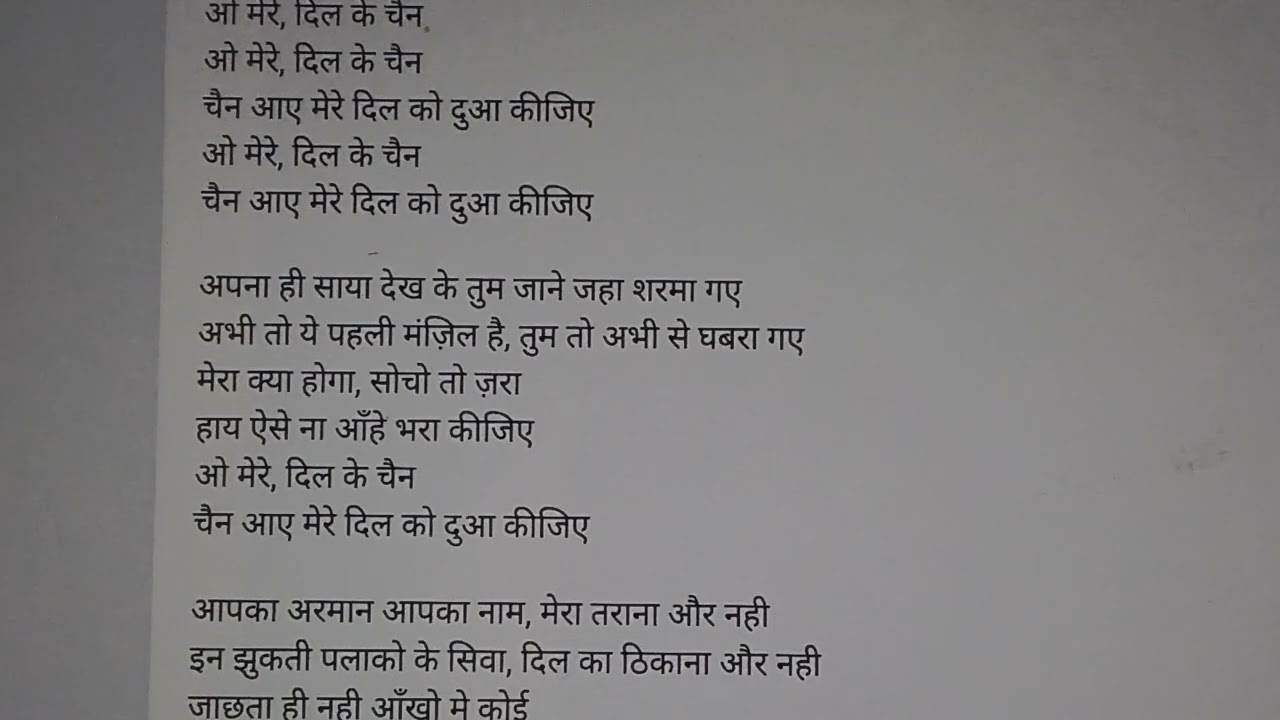 ओ मेरे, दिल के चैन
ओ मेरे, दिल के चैन
चैन आए मेरे दिल को दुआ कीजिए
ओ मेरे, दिल के चैन
चैन आए मेरे दिल को दुआ कीजिए
अपना ही साया देख के तुम जाने जहा शरमा गए
अभी तो ये पहली मंज़िल है, तुम तो अभी से घबरा गए
मेरा क्या होगा, सोचो तो ज़रा
हाय ऐसे ना आँहे भरा कीजिए
ओ मेरे, दिल के चैन
चैन आए मेरे दिल को दुआ कीजिए
आपका अरमान आपका नाम, मेरा तराना और नही
इन झुकती पलाको के सिवा, दिल का ठिकाना और नही
जाछता ही नही आँखो मे कोई